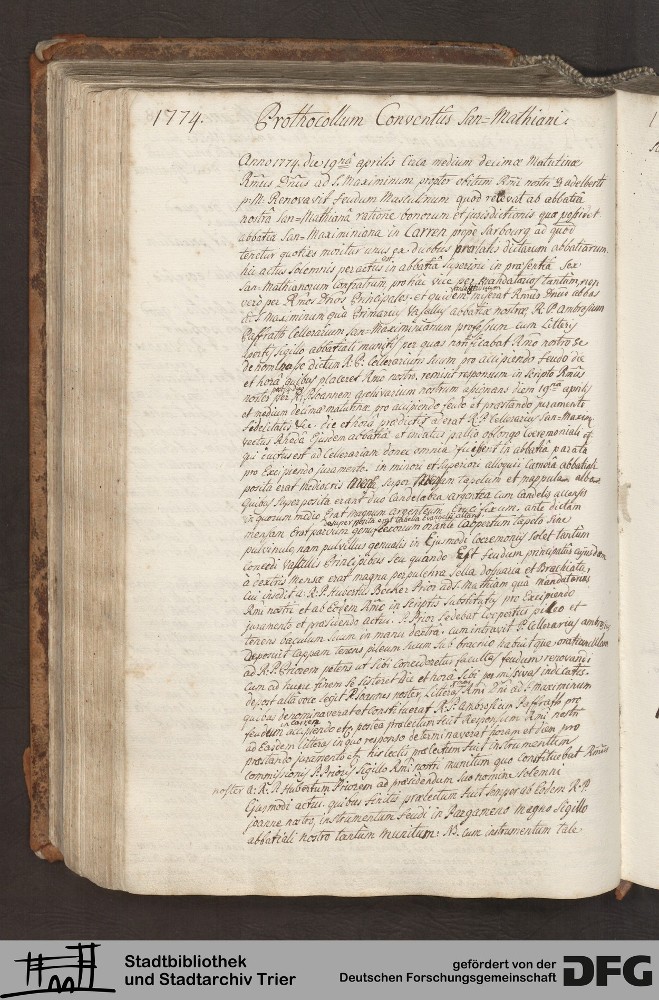 1774. Prothocollum Conventûs San=Mathiani.
Anno 1774. die 19nâ aprilis Circa medium decimæ Matutinæ
Rmus Dnus ad S. Maximinum propter obitum Rmi nostri D. adelberti
p. M. Renovavit feudum Masculinum quod relevat ab abbatiâ
nostrâ San=Mathianâ ratione bonorum et jurisdictionis quæ possidet
abbatia San=Maximiniana in Carren prope Sarbourg ad quod
tenetur quoties moritur unus ex duobus prælatis dictarum abbatiarum.
hic actus solemnis peractus est in abbatiâ superiori in præsentiâ sex
San=Mathianorum Confratrum, pro hâc vice per Mandatarios tantum, non
vero per Rmos Dnos Principales. et quidem miserat Rmus Dnus abbas
S. Maximini quâ Primarius Vasallus abbatiæ nostræ, R. P. ambrosium
Paffrath Cellerarium San=Maximinianum professum cum Litteris
apertis sigillo abbatiali munitis per quas notificabat Rmo nostro se
denominasse dictum R. P. Cellerarium suum pro accipiendo feudo die
et horâ quibus placeret Rmo nostro. remisit responsum in scripto Rmus
noster per R. P. Joannem archivarium nostrum assignans diem 19nâ aprilis
et medium decimæ matutinæ pro accipiendo feudo et præstando juramento
fidelitatis &c. die et horâ prædictis aderat R. P. Cellerarius San=Maxim.
vectus Rhedâ Ejusdem abbatiæ et indutus pallio oblongo Cæremoniali
qui ductus est ad Cellerariam donec omnia fuissent in abbatiâ parata
pro Excipiendo juramento. in minori et superiori alloquii Camerâ abbatiali
posita erat mediocris Mensa super Mensam tapetum et mappula alba
quibus superposita erant duo Candelabra argentea cum candelis accensis
in quorum medio Erat magnum argenteum Crucifixum. ante dictam
desuper posita erat tabula Evangelii altaris
mensam Erat parvum genuflexorium mante coopertum tapeto sine
pulvinulo, nam pulvillus genualis in Ejusmodi Cæremoniis solet tantum
Concedi Vasallis Principibus seu quando Est feudum principatûs cujusdam
à dextris Mensæ erat magna perpulchra Sella dossuaria et Brachiata,
cui insedit A. R. P. Hubertus Becker Prior ad S. Mathiam quâ mandatarius
Rmi nostri et ab Eodem Rmo in scriptis substitutus pro Excipiendo
juramento et præsidendo actui. P. Prior sedebat coopertus pileo et
tenens baculum suum in manu dextrâ. cum intravit P. Cellerarius ambrosius
deposuit Cappam tenens pileum suum sub brachio habuitque oratiunculam
ad R. P. Priorem petens ut sibi concederetur facultas feudum renovandi
cum ad hunc finem se sisteret die et horâ sibi per missivas indictis.
deposit altâ voce legit P. Joannes noster Litteras Rmi Dni ad S. Maximinum
quibus denominaverat et constituerat R. P. ambrosium Paffrath pro
feudum in Carren accipiendo etc. postea prælectum fuit Responsum Rmi nostri
ad Easdem litteras in quo responso determinaverat horam et diem pro
præstando juramento etc. his lectis prælectum fuit instrumentum
commissionis P. Prioris sigillo Rmi nostri munitum quo constituebat Rmus
noster A. R. P. Hubertum Priorem ad præsidendum suo nomine solemni
Ejusmodi actui. quibus finitis prælectum fuit semper ab Eodem R. P.
Joanne nostro, instrumentum feudi in Pargameno magno sigillo
abbatiali nostro tantum munitum. NB. cum instrumentum tale
Stadtbibliothek
und Stadtarchiv Trier
gefördert von der
Deutschen Forschungsgemeinschaft
DFG